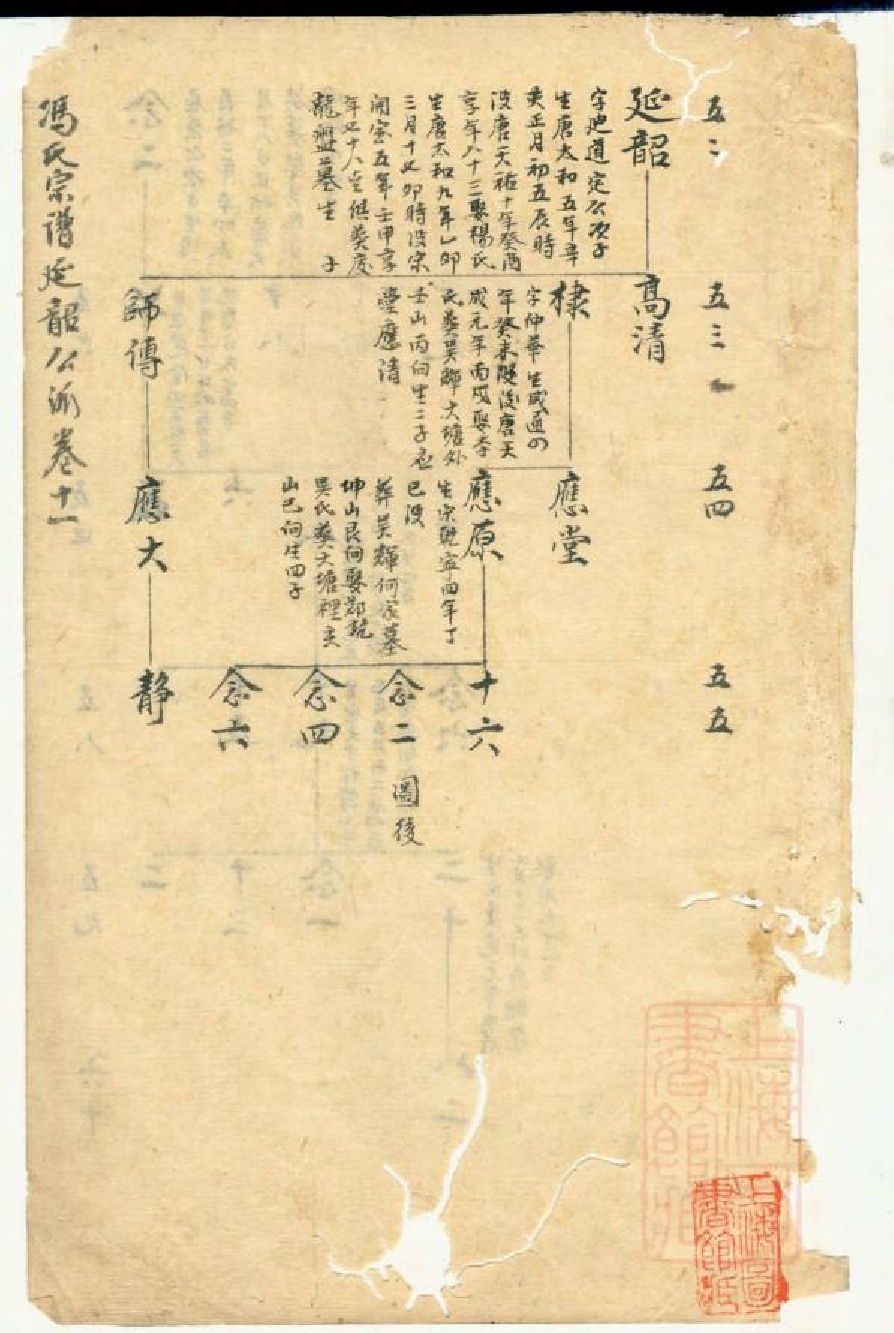 五二
延韶
字
道定公次子
生唐太和五年辛
亥正月初五辰時
沒唐天祐十年癸酉
享年八十三娶楊氏
生唐太和九年乙卯
三月十七卯時沒宋
開宝五年壬申享
年七十八
俱葬
龍盤墓生 子
五三
高清
棣
字仲華生咸通四
年癸未
後唐天
成元年丙戌娶李
氏葬吴輝大塘外
壬山丙向生二子應
堂應清
師傳
五四
應堂
應原
生宋乾寧四年丁
巳沒
葬吴輝何家墓
坤山艮向娶
吴氏葬大塘裡
山巳向生四子
應大
五五
十六
念二
圖後
念四
念六
靜
馮氏宗譜延韶公派卷十一
上海圖書館